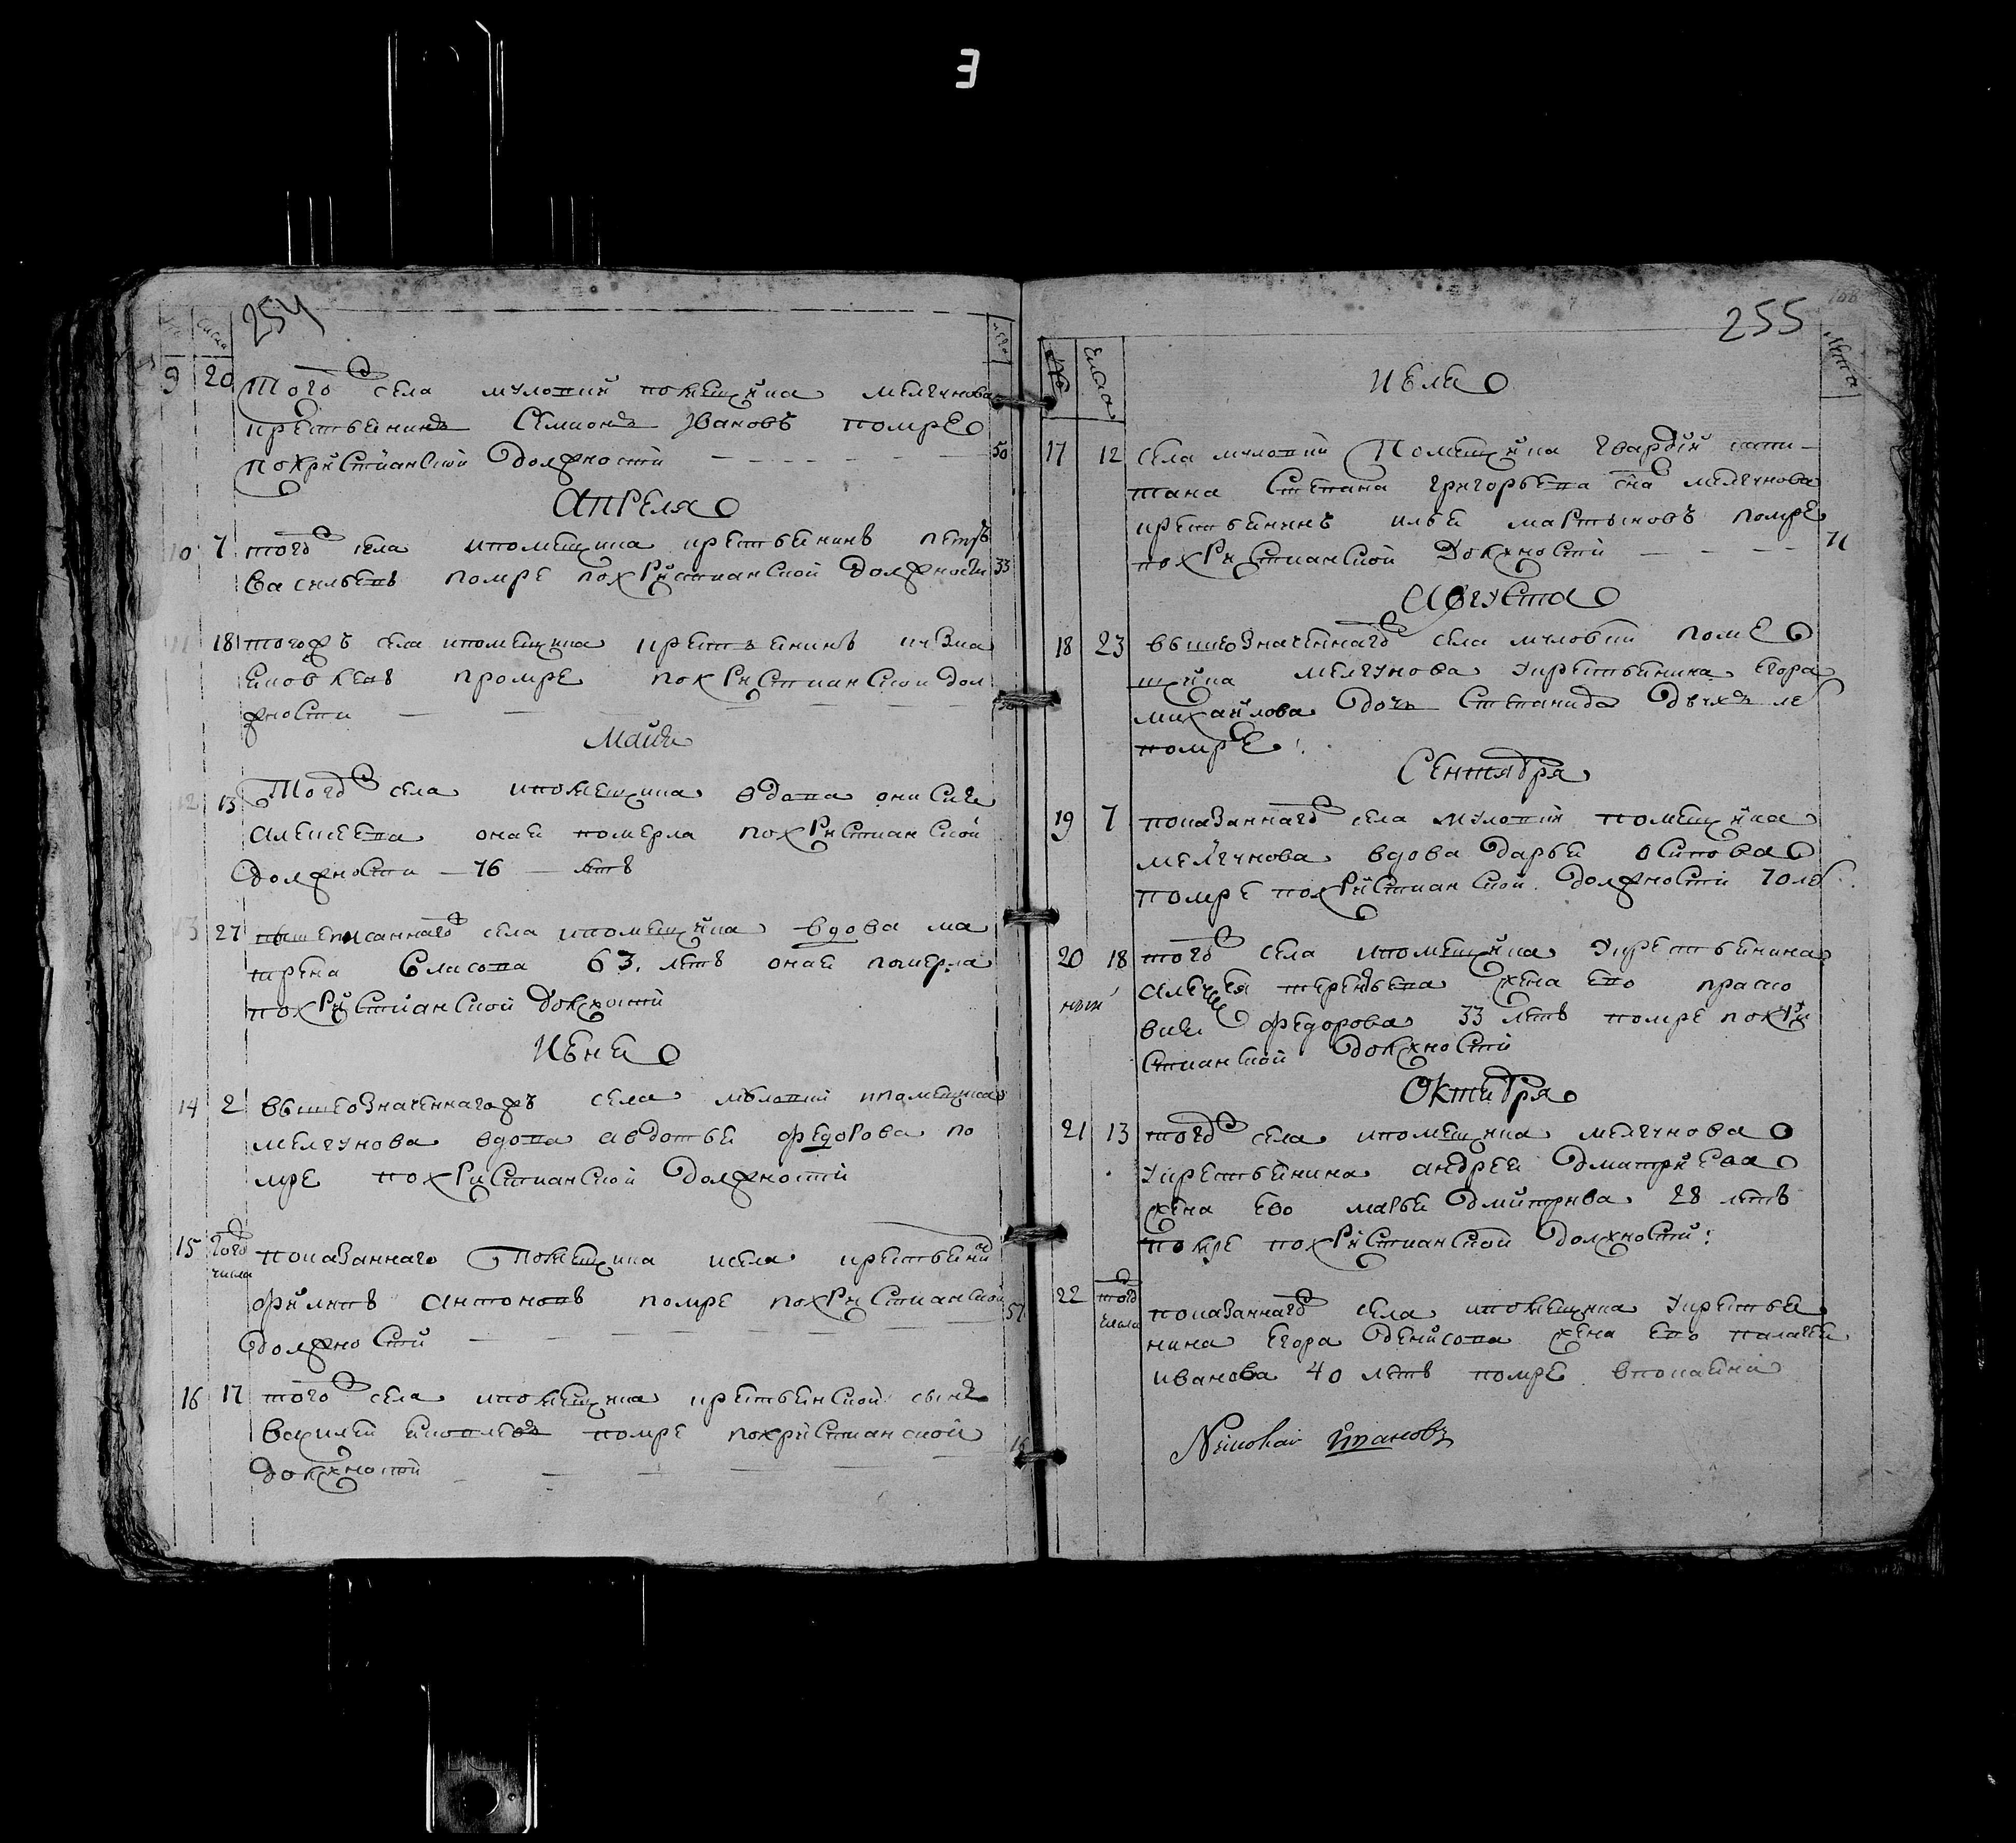 254
9 20 того села муловки помещика мелгунова
крестьенинъ Семионъ Ивановъ помре
по христианской должности 50
Апреля
10 7 того села ипомещика крестьенинъ петръ
васильевъ помре похристианской должности 33
11 18 тогожъ села ипомещика крестьенинъ
помре похристианской дол
жности
Майя
12 13 Того села ипомещика вдова
алексеева оная померла похристианской
должности 76 летъ
13 27 вышеписаннаго села ипомещика вдова ма
трена власова 63 летъ оная померла
похристианской должности
Июня
14 2 вышеозначеннагожъ села муловки ипомещика
мелгунова вдова авдотья федорова по
мре похристианской должности
15 того числа показаннаго помещика исела крестьенинъ
филатъ антоновъ помре похристианской 57
должности
16 17 того села ипомещика крестьенской сынъ
василей помре похристианской 16
должности
255
Июля
17 12 села муловки Помещика гвардии капи-
тана Степана григорьева сна мелгунова
крестьенинъ илья мартыновъ помре
похристианской должности
Августа
18 23 вышеозначеннаго села муловки поме
щика мелгунова укрестьенина егора
михайлова дочь степанида двухъ ле
помре
Сентября
19 7 показаннаго села муловки помещика
мелгунова вдова дарья осипова
помре похристианской должности 70 ле
20 18 того села ипомещика укрестьенина
алексея терентьева жена ево праско
вия федорова 33 летъ помре похри
стианской должности
Октября
21 13 того села ипомещика мелгунова
укрестьенина андрея дмитриева
жена ево марья дмитрива 28 летъ
помре похристианской должности
22 того числа показаннаго села ипомещика укрестье
нина егора денисова жена ево палагея
иванова 40 летъ помре впокаянии
Ивановъ